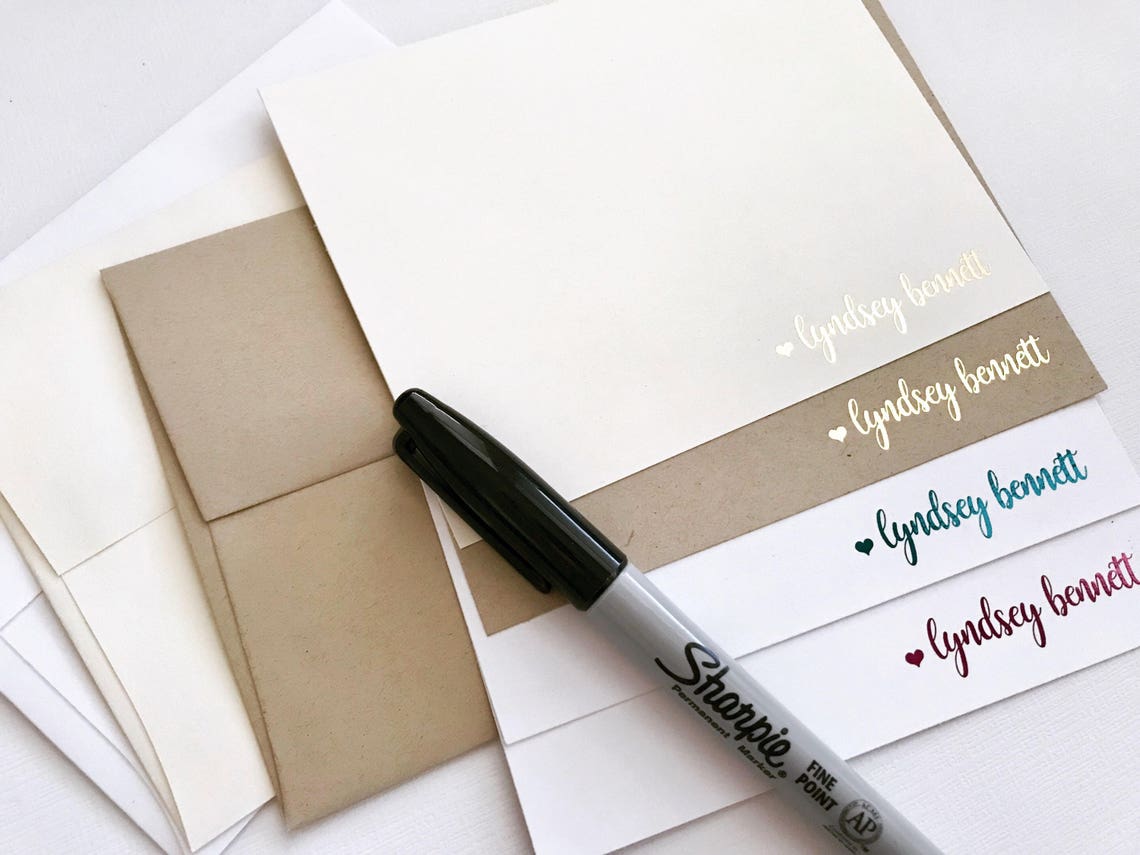 lyndsey bennett
lyndsey bennett
lyndsey bennett
lyndsey bennett
Sharpie®
Permanent Marker
FINE
POINT
AP